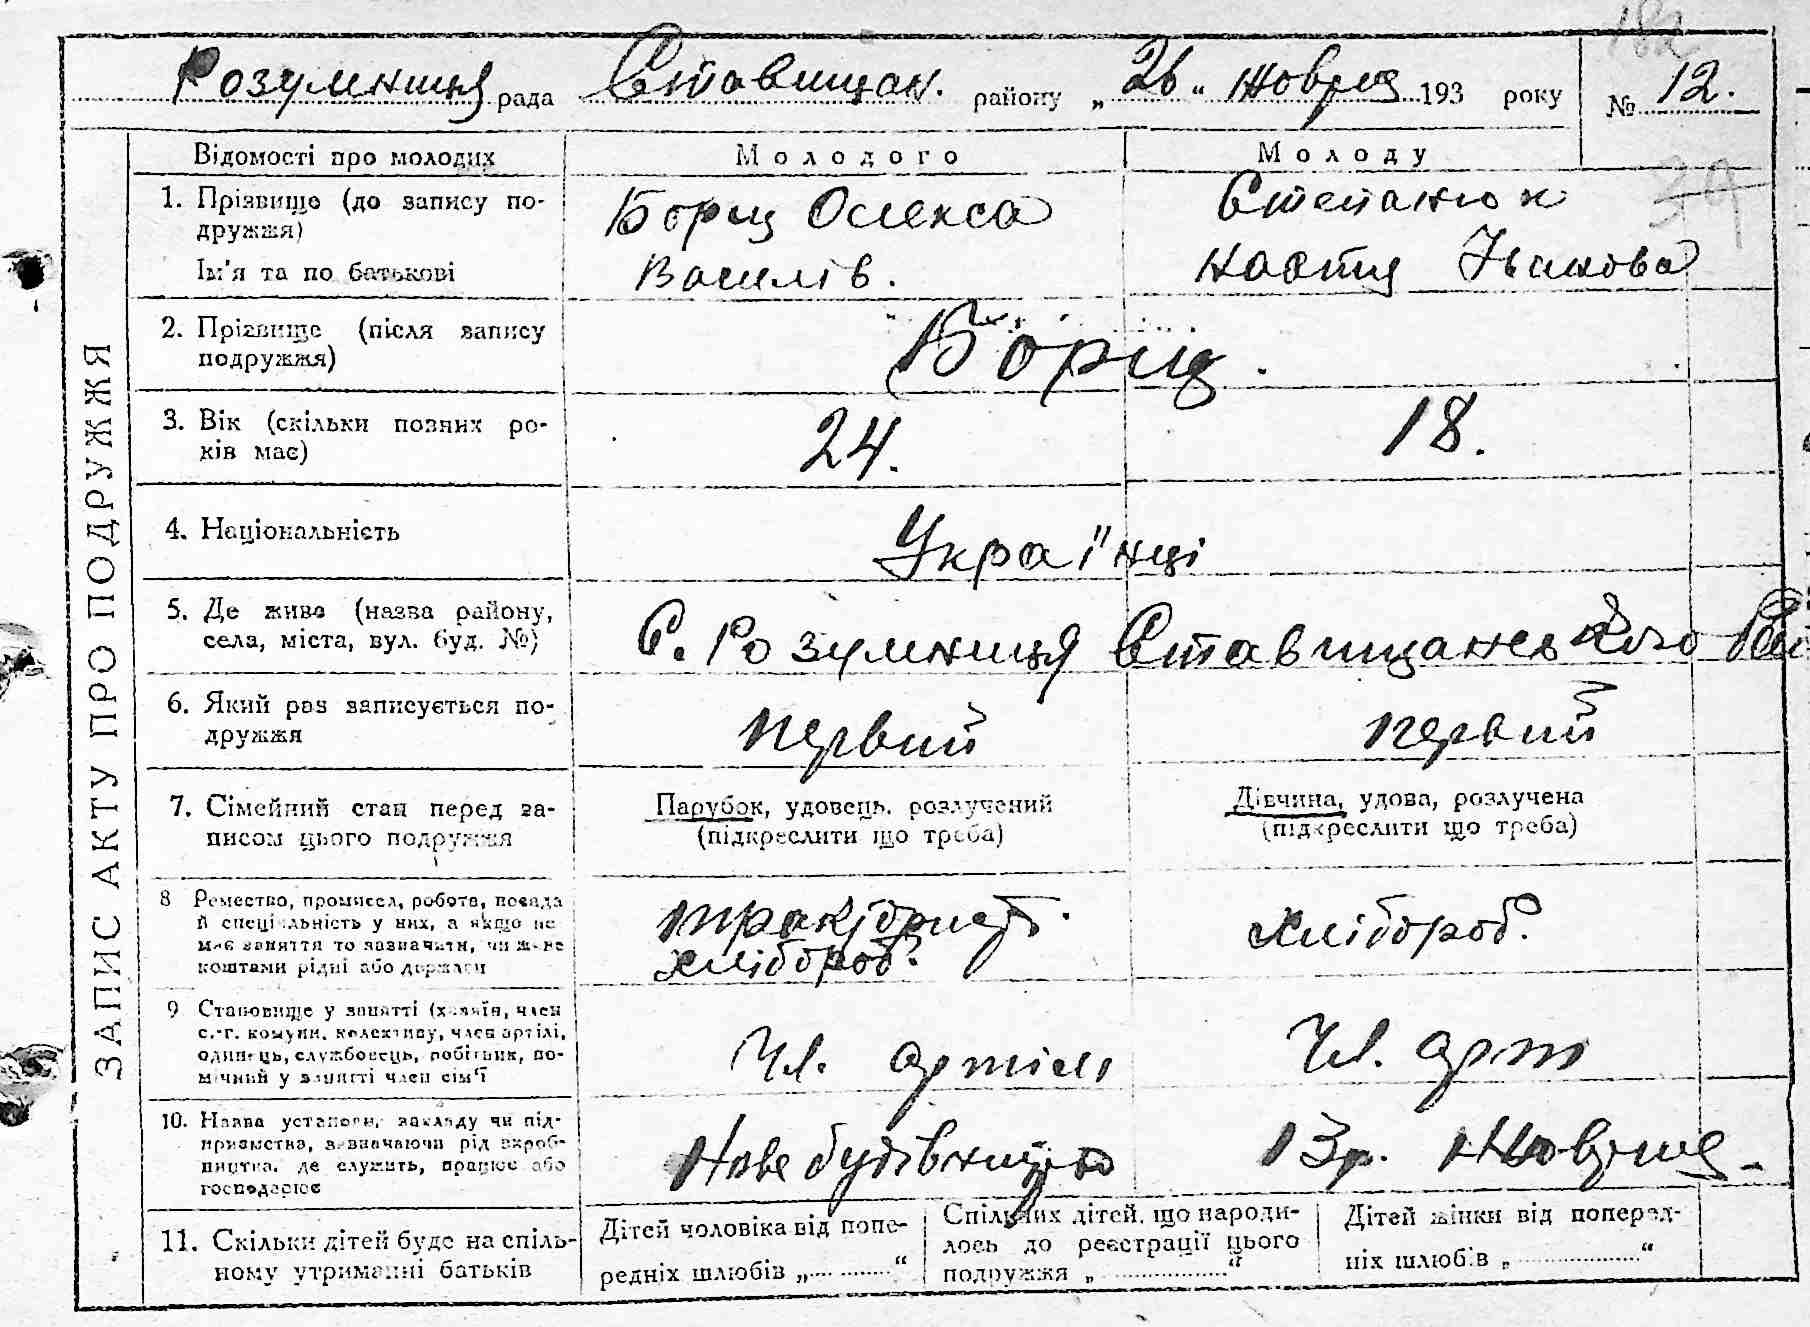 182
Розумниця рада Ставищан. району „ 26 “ жовтня 193 року № 12.
39
ЗАПИС АКТУ ПРО ПОДРУЖЖЯ
Відомості про молодих Молодого Молоду
1. Прізвище (до запису по-
дружжя)
Ім'я та по батькові
Борщ Олекса
Василів.
Степанюк
Настя Якимова
2. Прізвище (після запису
подружжя)
Борщ.
3. Вік (скільки повних ро-
ків має)
24. 18.
4. Національність
Українці
5. Де живе (назва району,
села, міста, вул. буд. №)
С. Розумниця Ставищанського
6. Який раз записується по-
дружжя
первий первий
7. Сімейний стан перед за-
писом цього подружжя
Парубок, удовець, розлучений
(підкреслити що треба)
Дівчина, удова, розлучена
(підкреслити що треба)
8 Ремество, промисел, робота, посада
й спеціяльність у них, а якщо не
має заняття то зазначити, чи живе
коштами рідні або держави
тракторист
хлібороб.
хлібороб.
9 Становище у занятті (хазяїн, член
с.-г. комуни, колективу, член артілі,
одинець, службовець, робітник, по-
мічний у занятті член сім'ї
Чл. артілі Чл. арт
10. Назва установи, закладу чи під-
приємства, зазначаючи рід вироб-
ництва, де служить, працює або
господарює
Нове будівництво 13р. Жовтня
11. Скільки дітей буде на спіль-
ному утриманні батьків
Дітей чоловіка від попе-
редніх шлюбів „ “
Спільних дітей, що народи-
лось до реєстрації цього
подружжя „ “
Дітей жінки від поперед-
ніх шлюбів „ “